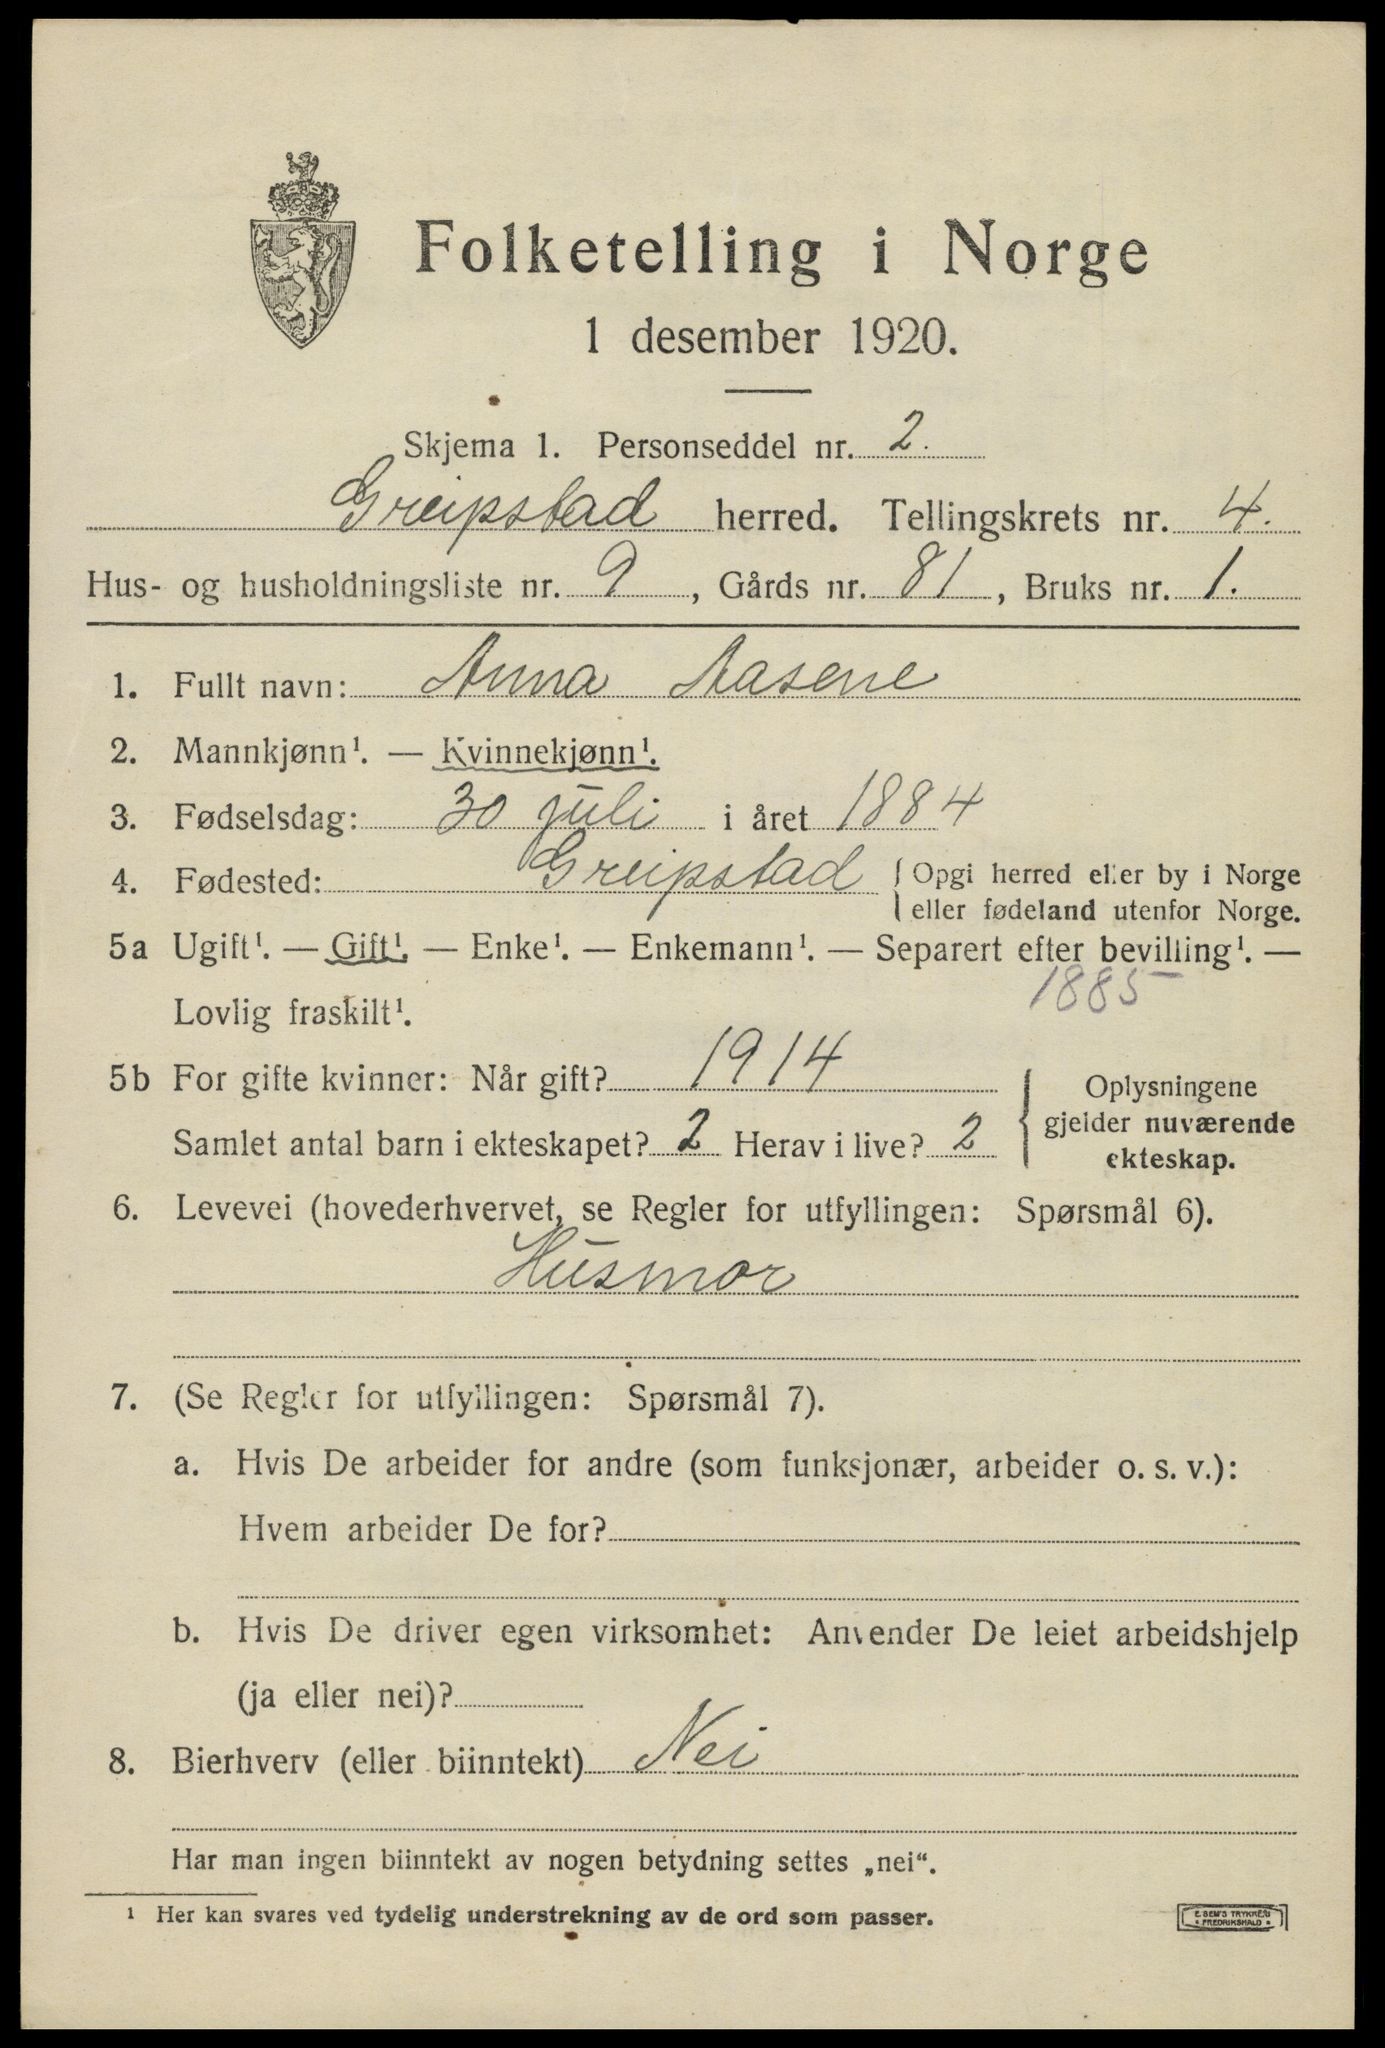 Folketelling i Norge
1 desember 1920.
Skjema 1. Personseddel nr. 2.
Greipstad herred. Tellingskrets nr. 4.
Hus- og husholdningsliste nr. 9, Gårds nr. 81, Bruks nr. 1.
1. Fullt navn: Anna Aasene
2. Mannkjønn¹. — Kvinnekjønn¹.
3. Fødselsdag: 30 juli i året 1884
4. Fødested: Greipstad { Opgi herred eller by i Norge
eller fødeland utenfor Norge.
5a Ugift¹. — Gift¹. — Enke¹. — Enkemann¹. — Separert efter bevilling¹. —
Lovlig fraskilt¹. 1885
5b For gifte kvinner: Når gift? 1914
Samlet antal barn i ekteskapet? 2 Herav i live? 2
{ Oplysningene
gjelder nuværende
ekteskap.
6. Levevei (hovederhvervet, se Regler for utfyllingen: Spørsmål 6).
Husmor
7. (Se Regler for utfyllingen: Spørsmål 7).
a. Hvis De arbeider for andre (som funksjonær, arbeider o. s. v.):
Hvem arbeider De for?
b. Hvis De driver egen virksomhet: Anvender De leiet arbeidshjelp
(ja eller nei)?
8. Bierhverv (eller biinntekt) Nei
Har man ingen biinntekt av nogen betydning settes „nei“.
¹ Her kan svares ved tydelig understrekning av de ord som passer.
E. SEM'S TRYKKERI
• FREDRIKSHALD •